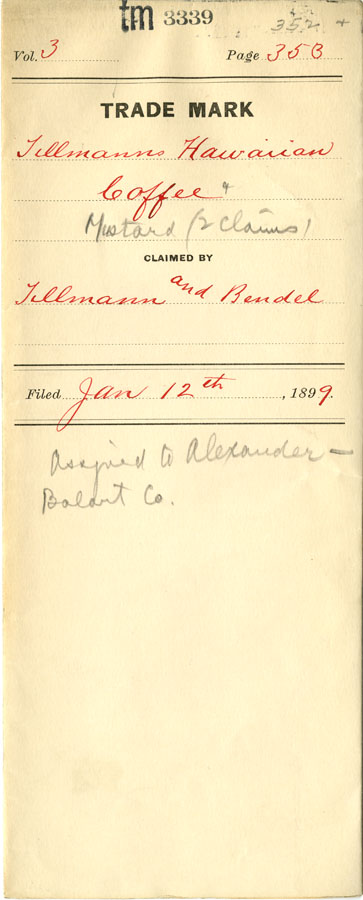 tm 3339
352 +
Vol. 3 Page 353
TRADE MARK
Tillmanns Hawaiian
Coffee &
Mustard (2 Claims)
CLAIMED BY
Tillmann and Bendel
Filed Jan 12th, 1899.
Assigned to Alexander —
Balart Co.